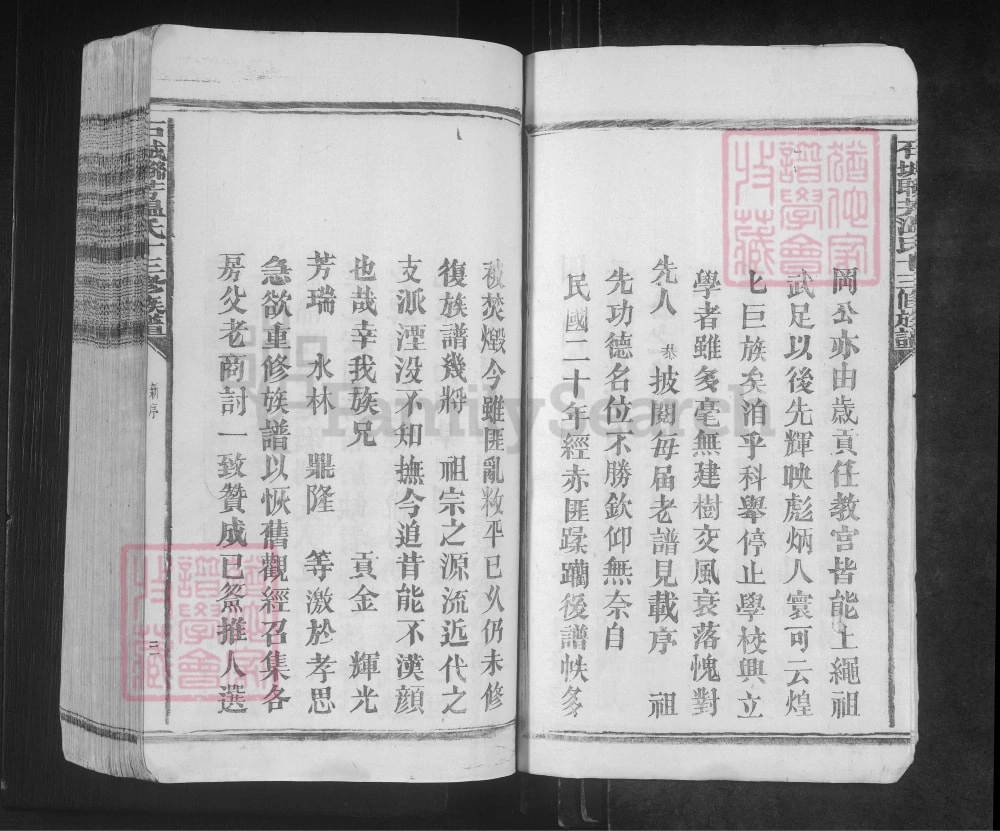 岡公亦由歲貢任教官皆能上繩祖
武足以後先輝映彪炳人寰可云煌
七巨族矣洎乎科舉停止學校興立
學者雖多毫無建樹文風衰落愧對
先人 恭披閱每届老譜見載序 祖
先功德名位不勝欽仰無奈自
民國二十年經赤匪蹂躪後譜帙多
被焚燬今雖匪亂敉平已久仍未修
復族譜幾將 祖宗之源流近代之
支派湮没不知撫今追昔能不漢顔
也哉幸我族兄 貢金 輝光
芳瑞 水林 鼎隆 等激於孝思
急欲重修族譜以恢舊觀經召集各
房父老商討一致贊成已僉推人選
石城聯芳溫氏十三修族譜
新序
三
石城聯芳溫氏十三修族譜
猶他家譜學會收藏
猶他家譜學會收藏
FamilySearch